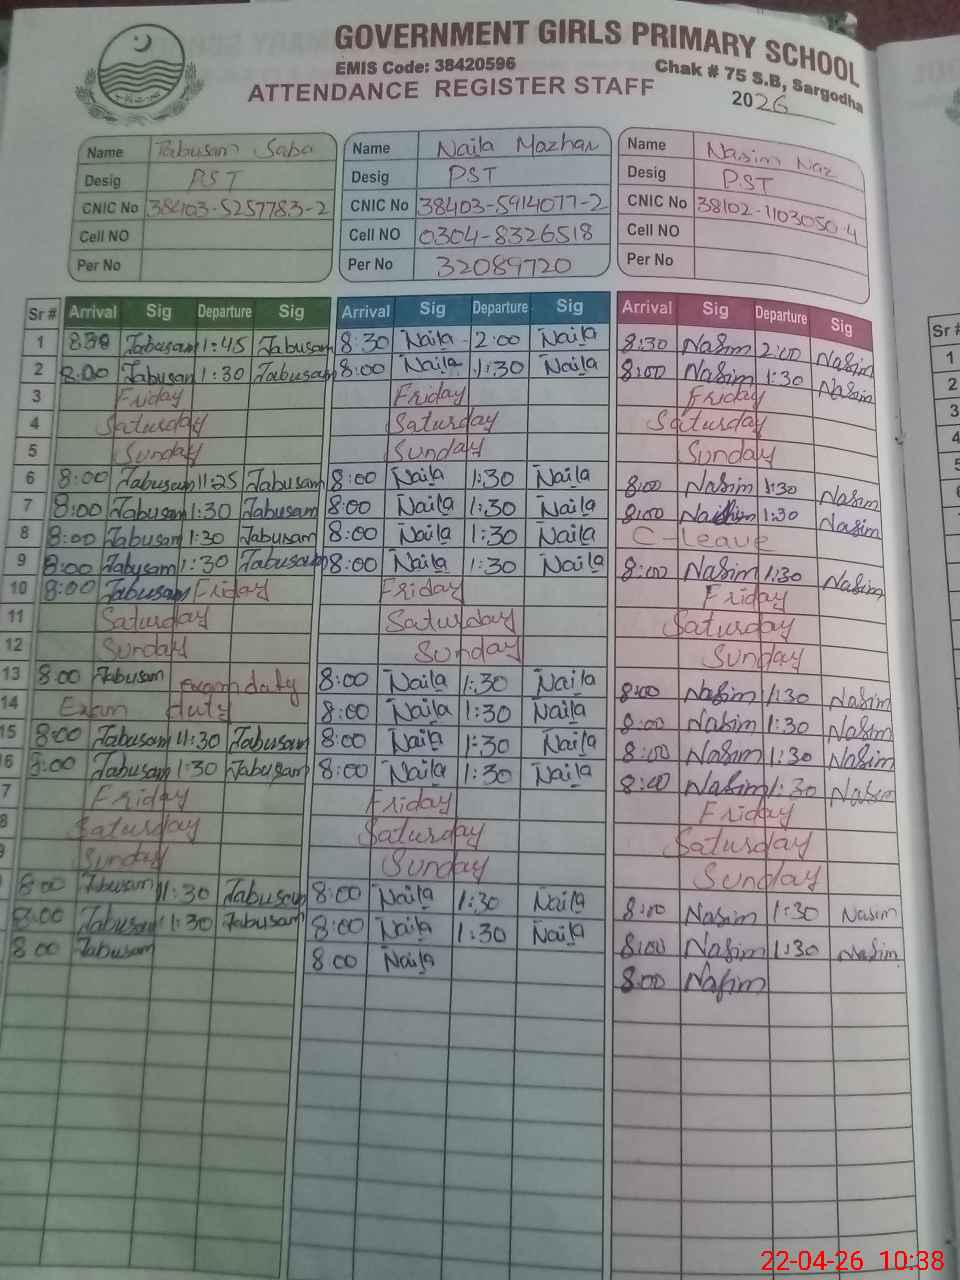 GOVERNMENT GIRLS PRIMARY SCHOOL
EMIS Code: 38420596 Chak # 75 S.B, Sargodha
ATTENDANCE REGISTER STAFF 2026
Name Tabusam Saba Name Naila Mazhar Name Nasim Naz
Desig PST Desig PST Desig PST
CNIC No 38403-5257783-2 CNIC No 38403-5914077-2 CNIC No 38102-1103050-4
Cell NO Cell NO 0304-8326518 Cell NO
Per No Per No 32089720 Per No
Sr # Arrival Sig Departure Sig Arrival Sig Departure Sig Arrival Sig Departure Sig Sr #
1 Tabusam 1:45 Tabusam 8:30 Naila 2:00 Naila 8:30 Nasim 2:00 Nasim 1
2 8:00 Tabusam 1:30 Tabusam 8:00 Naila 1:30 Naila 8:00 Nasim 1:30 Nasim 2
3 Friday Friday Friday 3
4 Saturday Saturday Saturday 4
5 Sunday Sunday Sunday 5
6 8:00 Tabusam 11:25 Tabusam 8:00 Naila 1:30 Naila 8:00 Nasim 1:30 Nasim
7 8:00 Tabusam 1:30 Tabusam 8:00 Naila 1:30 Naila 8:00 1:30 Nasim
8 8:00 Tabusam 1:30 Tabusam 8:00 Naila 1:30 Naila C-leave
9 8:00 Tabusam 1:30 Tabusam 8:00 Naila 1:30 Naila 8:00 Nasim 1:30 Nasim
10 8:00 Tabusam Friday Friday Friday
11 Saturday Saturday Saturday
12 Sunday Sunday Sunday
13 8:00 Tabusam exam duty 8:00 Naila 1:30 Naila 8:00 Nasim 1:30 Nasim
14 Exam duty 8:00 Naila 1:30 Naila 8:00 Nasim 1:30 Nasim
15 8:00 Tabusam 11:30 Tabusam 8:00 Naila 1:30 Naila 8:00 Nasim 1:30 Nasim
6 8:00 Tabusam 1:30 Tabusam 8:00 Naila 1:30 Naila 8:00 Nasim 1:30 Nasim
7 Friday Friday Friday
8 Saturday Saturday Saturday
9 Sunday Sunday Sunday
8:00 Tabusam 11:30 Tabusam 8:00 Naila 1:30 Naila 8:00 Nasim 1:30 Nasim
8:00 Tabusam 1:30 Tabusam 8:00 Naila 1:30 Naila 8:00 Nasim 1:30 Nasim
8:00 Tabusam 8:00 Naila 8:00 Nasim
22-04-26 10:38